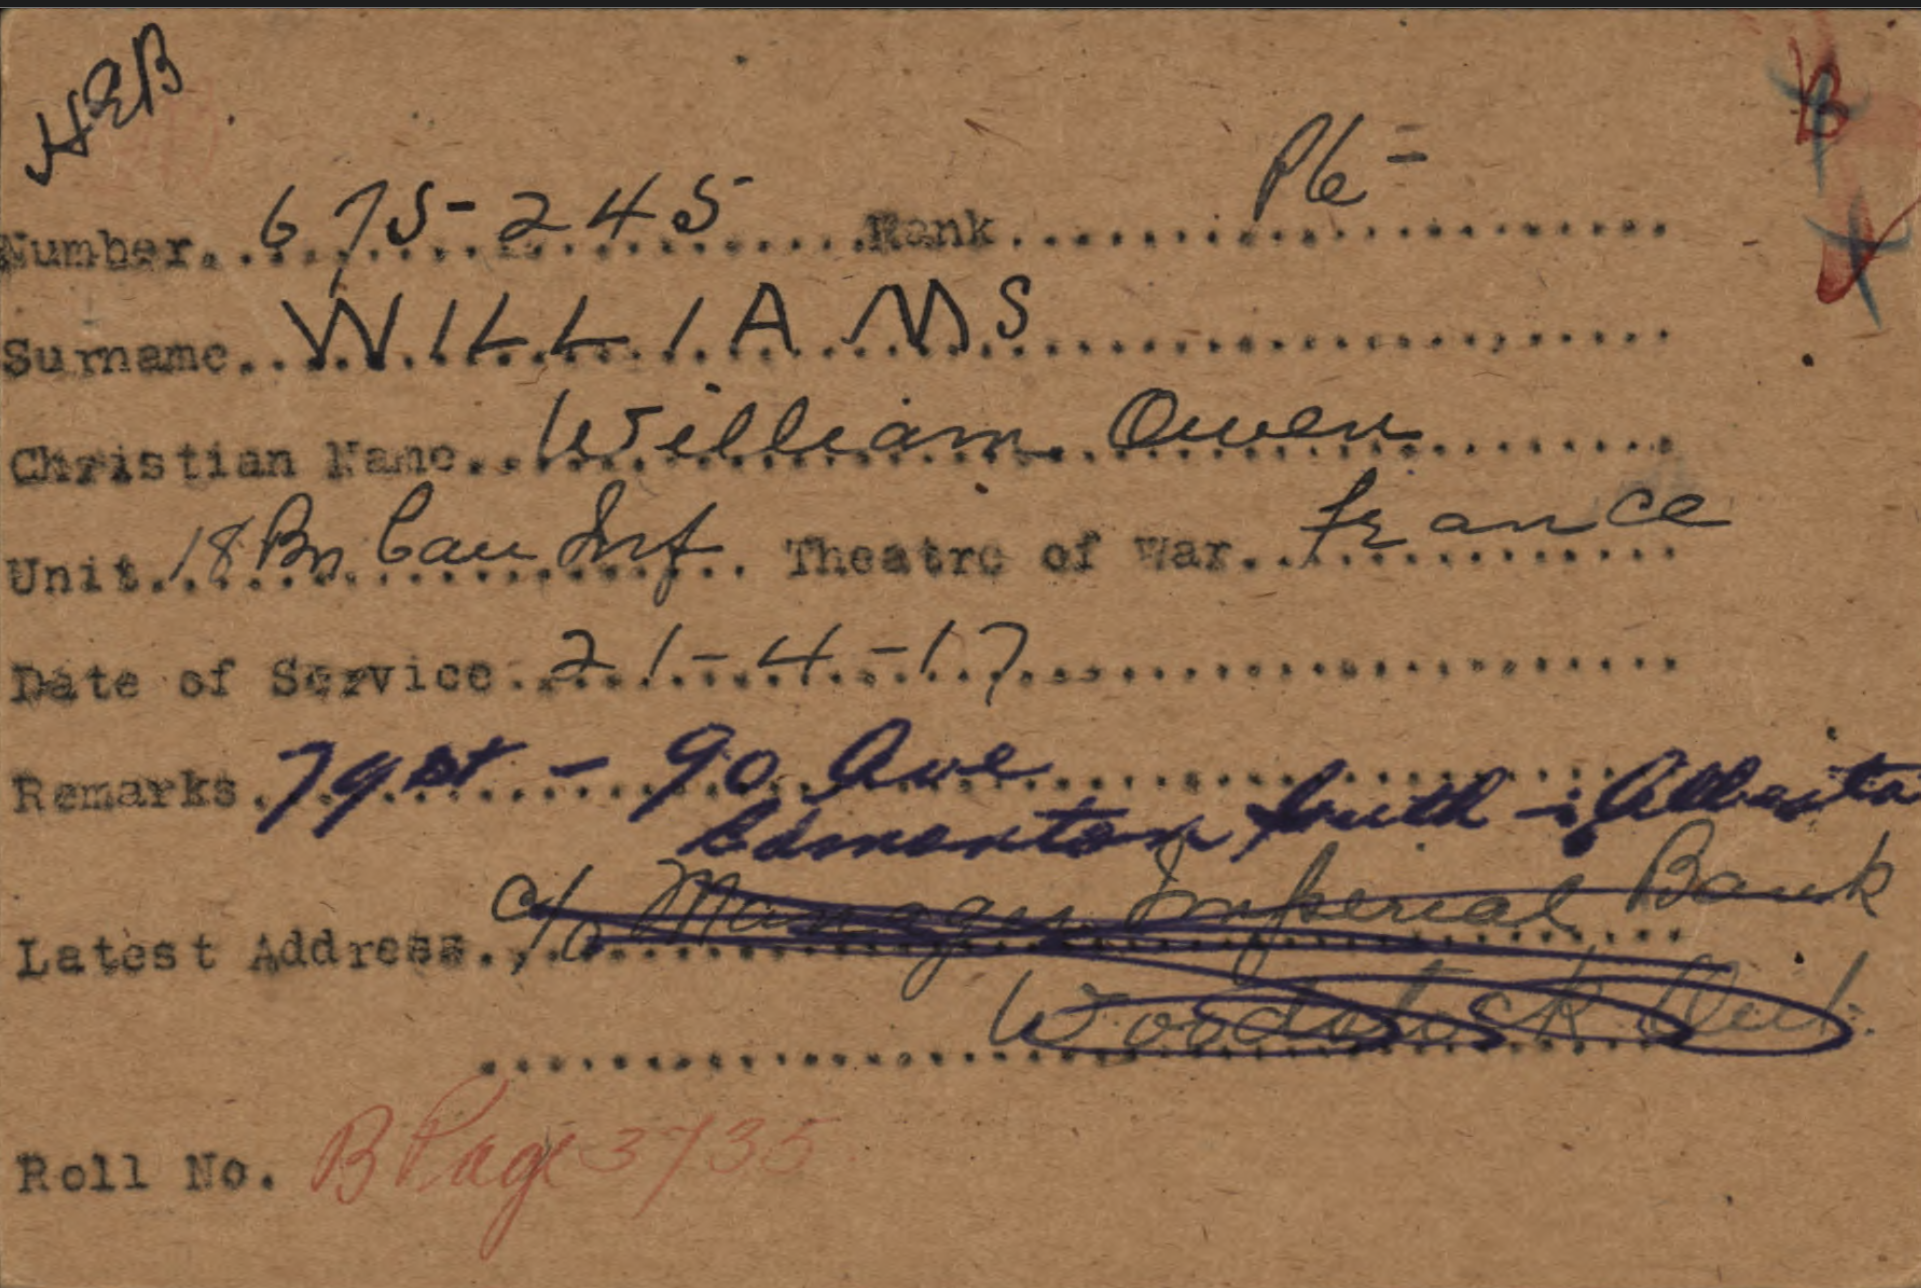 HEB
B
Number 675-245 Rank Pte
Surname WILLIAMS
Christian Name William Owen
Unit 18 Bn Can Inf. Theatre of War France
Date of Service 21-4-17
Remarks 79 st - 90 Ave
Edmonton South - Alberta
Latest Address c/o Manager Imperial Bank
Woodstock Ont.
Roll No. B Page 3735